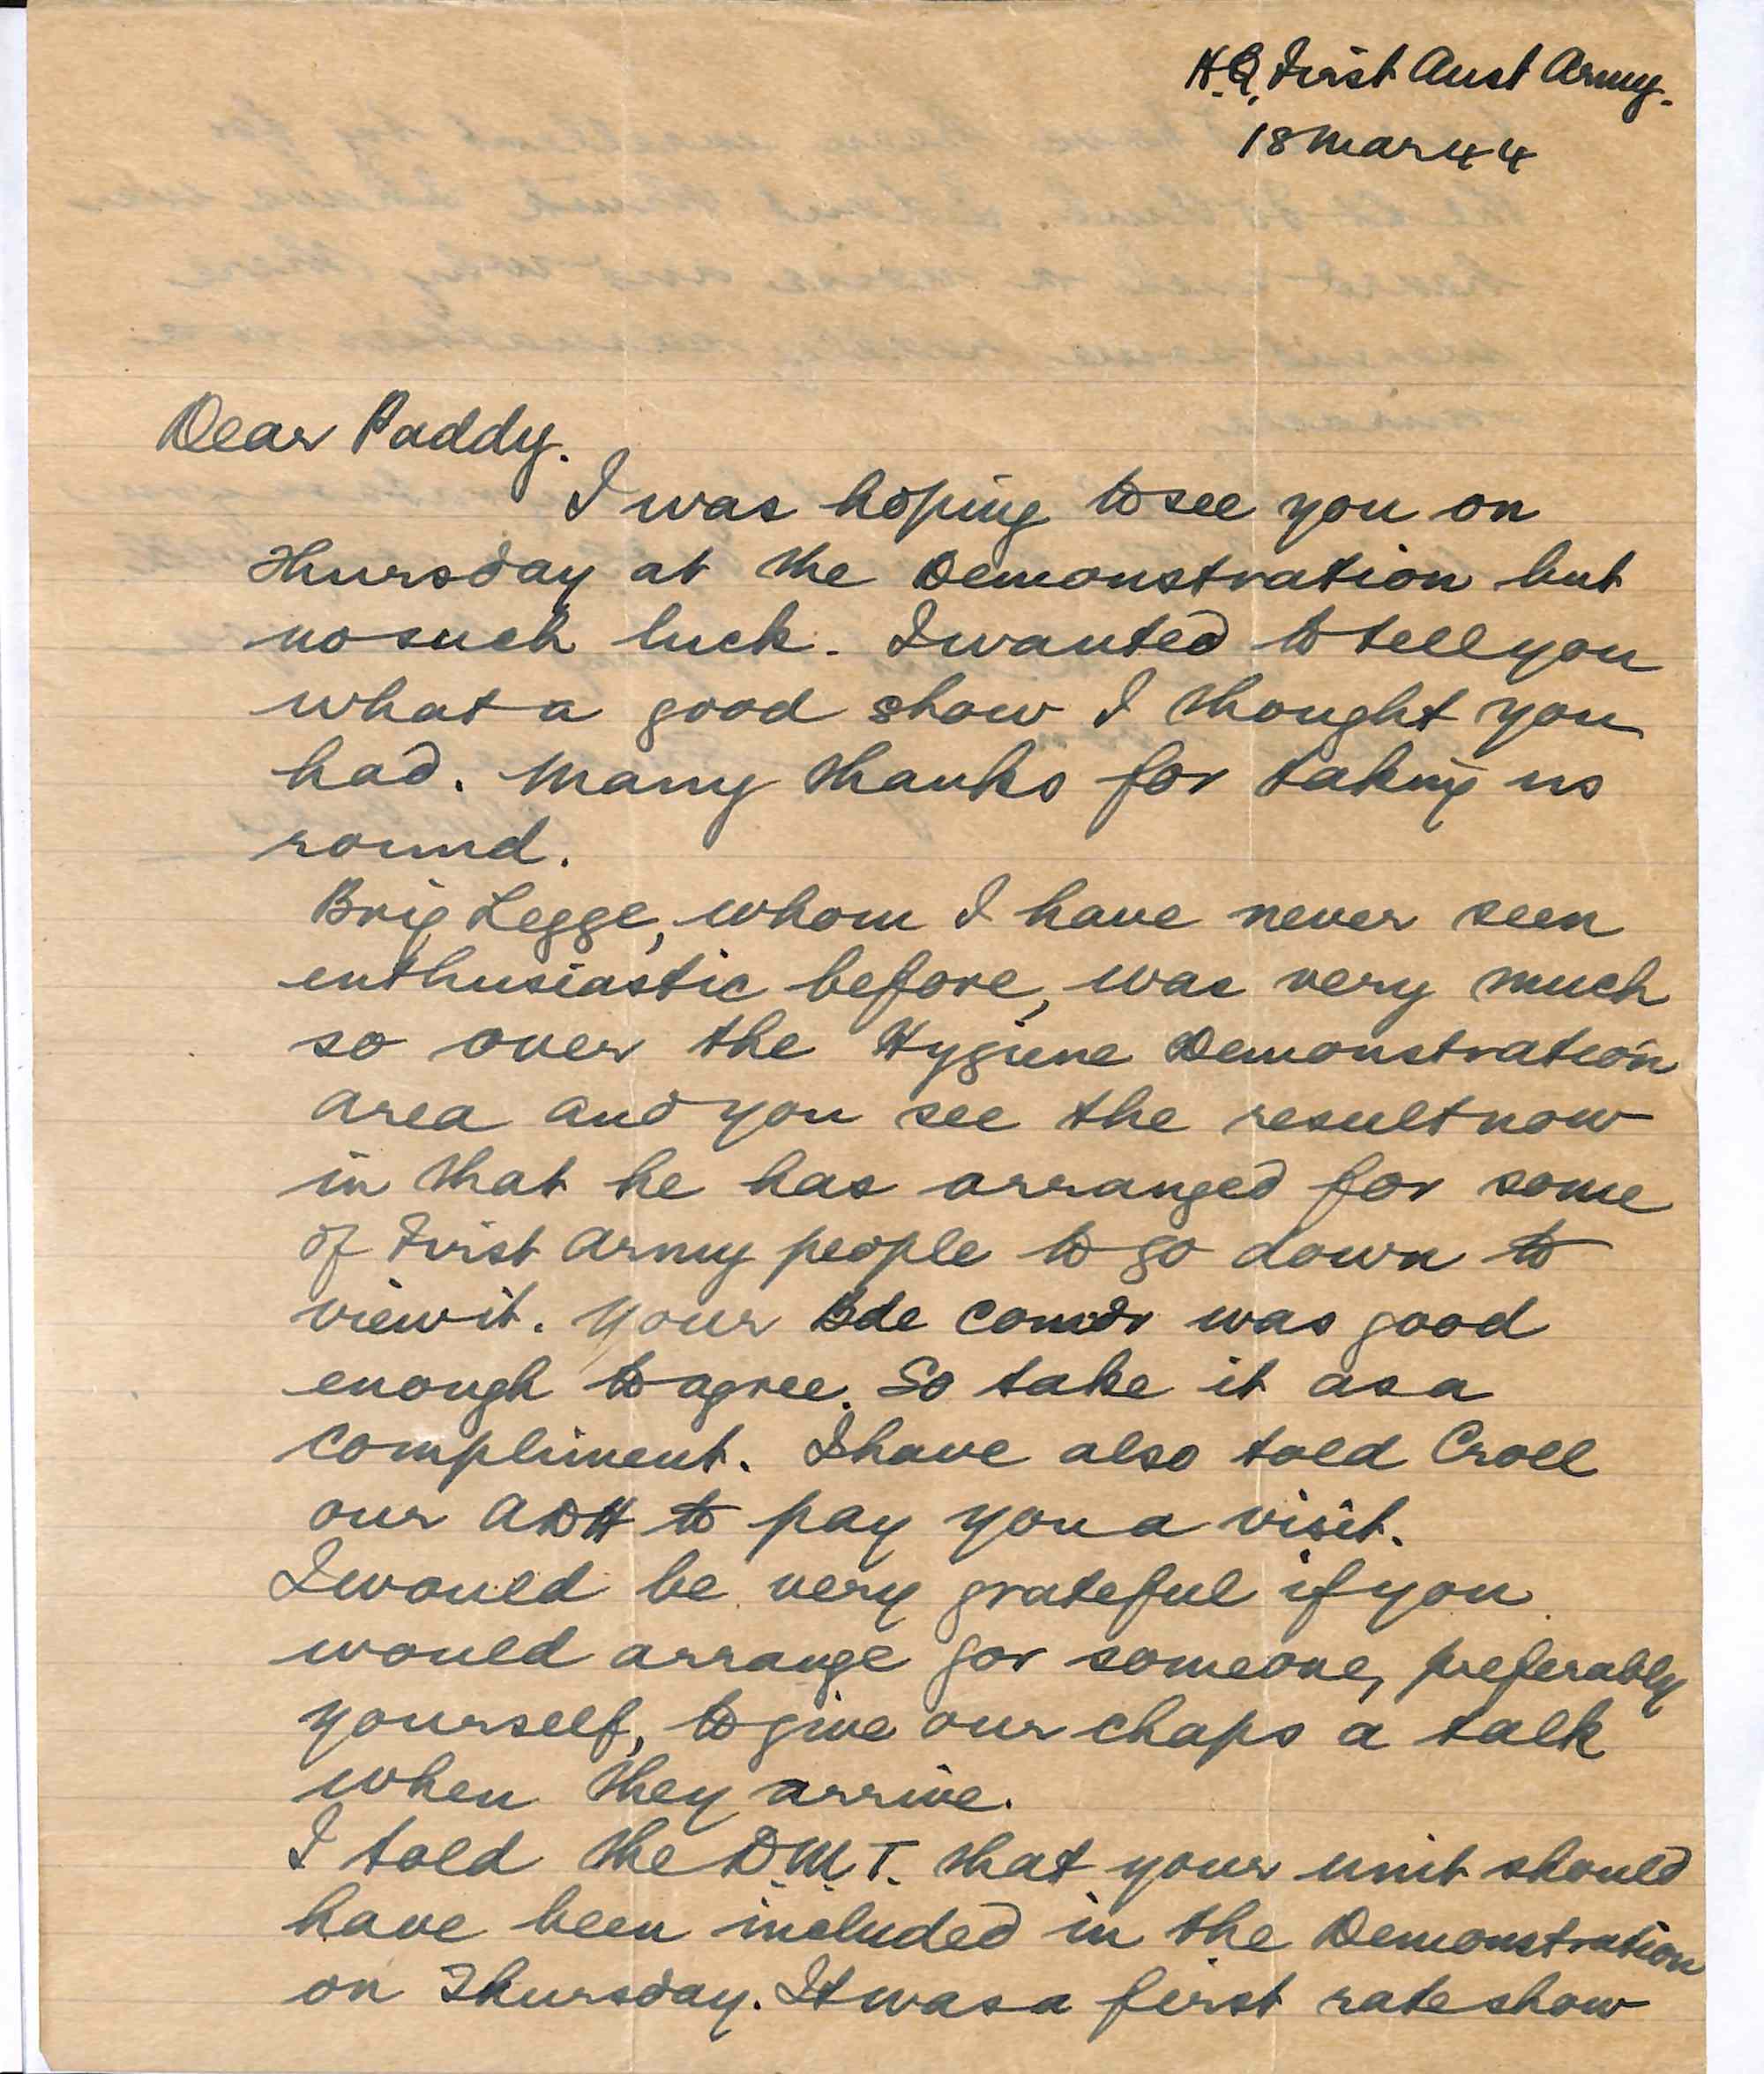 H.Q. First Aust Army.
18 Mar 44
Dear Paddy.
I was hoping to see you on
Thursday at the Demonstration but
no such luck. I wanted to tell you
what a good show I thought you
had. Many thanks for taking us
round.
Brig Legge, whom I have never seen
enthusiastic before, was very much
so over the Hygiene Demonstration
area and you see the result now
in that he has arranged for some
of First Army people to go down to
view it. Your Bde Comdr was good
enough to agree. So take it as a
compliment. I have also told Croll
our ADH to pay you a visit.
I would be very grateful if you
would arrange for someone, preferably
yourself, to give our chaps a talk
when they arrive.
I told the D.M.T. that your unit should
have been included in the Demonstration
on Thursday. It was a first rate show